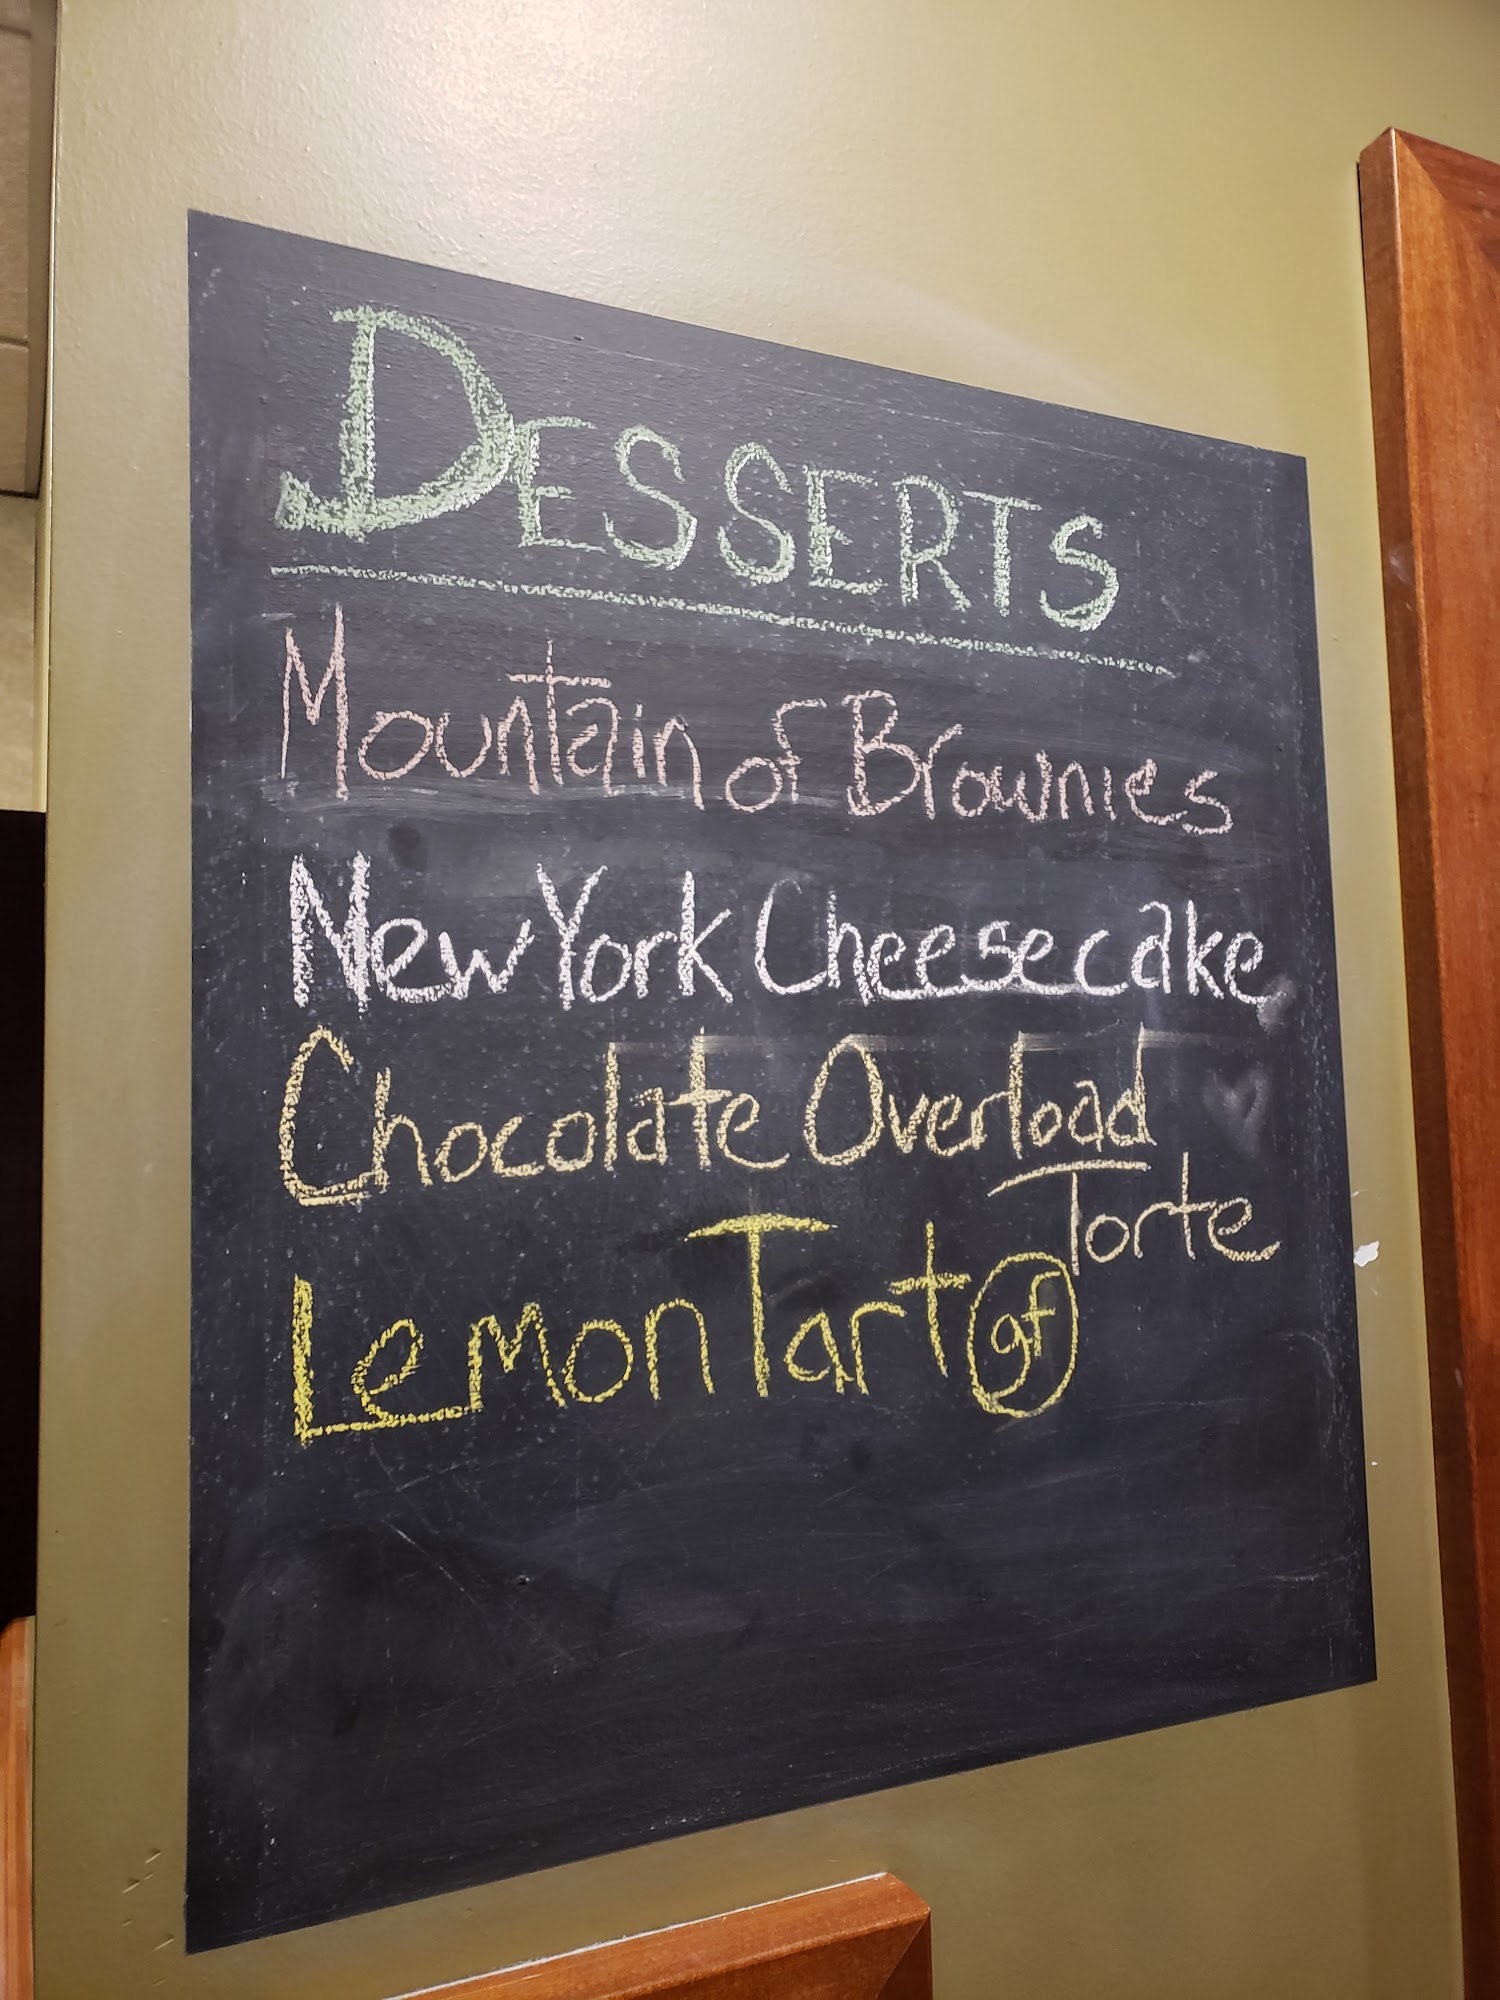 DESSERTS
Mountain of Brownies
New York Cheesecake
Chocolate Overload
Torte
Lemon Tart gf